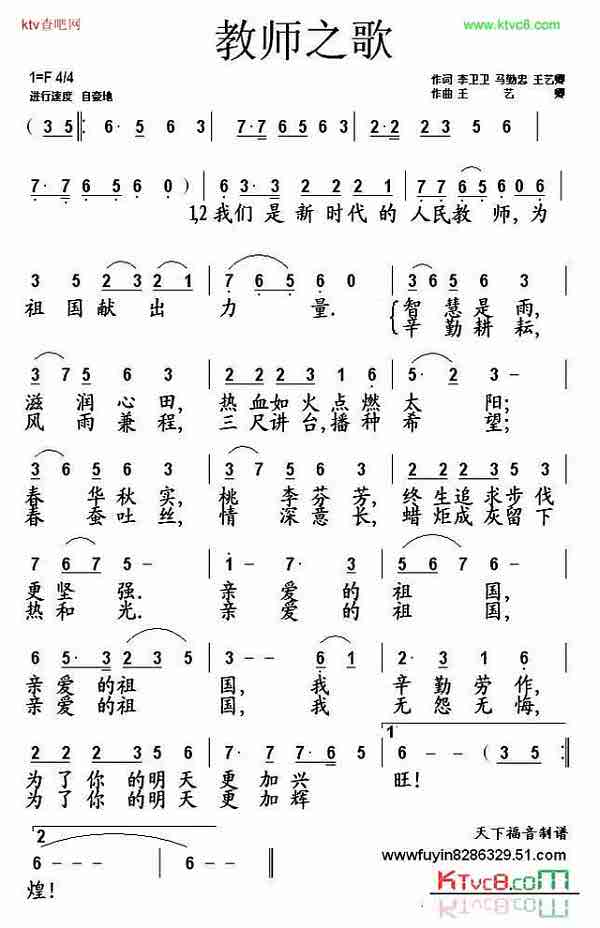 ktv查吧网
www.ktvc8.com
教师之歌
1=F 4/4
作词 李卫卫 马勤忠 王艺卿
进行速度 自豪地
作曲 王 艺 卿
( 3 5 ‖: 6· 7 6 3 2 | 7·7 6 5 3 5 6 | 2·2 2 3 5 |
7· 7 6 5 6 0 ) | 6 3· 3 2 2 2 1 | 7· 7 7 6 5 6 0 6 |
1,2 我们是新时代的人民教师,为
3 5 2 3 2 1 | 7 6 5 6 0 | 3 6 5 6 3 |
祖国献出力量. 智慧是雨,
辛勤耕耘,
3 7 5 6 3 | 2 2 2 3 1 6 | 5· 2 3 - |
滋润心田,热血如火点燃太阳;
风雨兼程,三尺讲台,播种希望;
3 6 5 6 3 | 7 6 5 3 | 6 1 2 2 1 6 |
春华秋实,桃李芬芳,终生追求步伐
春蚕吐丝,情深意长,蜡炬成灰留下
7 6 7 5 - | 1 - 7· 3 | 5 6 7 6 - |
更坚强. 亲爱的祖国,
热和光. 亲爱的祖国,
6 5· 3 2 3 5 | 6 - - 6 1 | 2· 3 1 6 |
亲爱的祖国,我辛勤劳作,
亲爱的祖国,我无怨无悔,
2 2 2 3 5 6 5 | 7· 7 7· 6 5 | 6 - - ( 3 5 :‖
1
为了你的明天更加兴旺!
为了你的明天更加辉
2
6 - - - | 6 - - ‖
煌!
天下福音制谱
www.fuyin8286329.51.com
KTVC8.COM